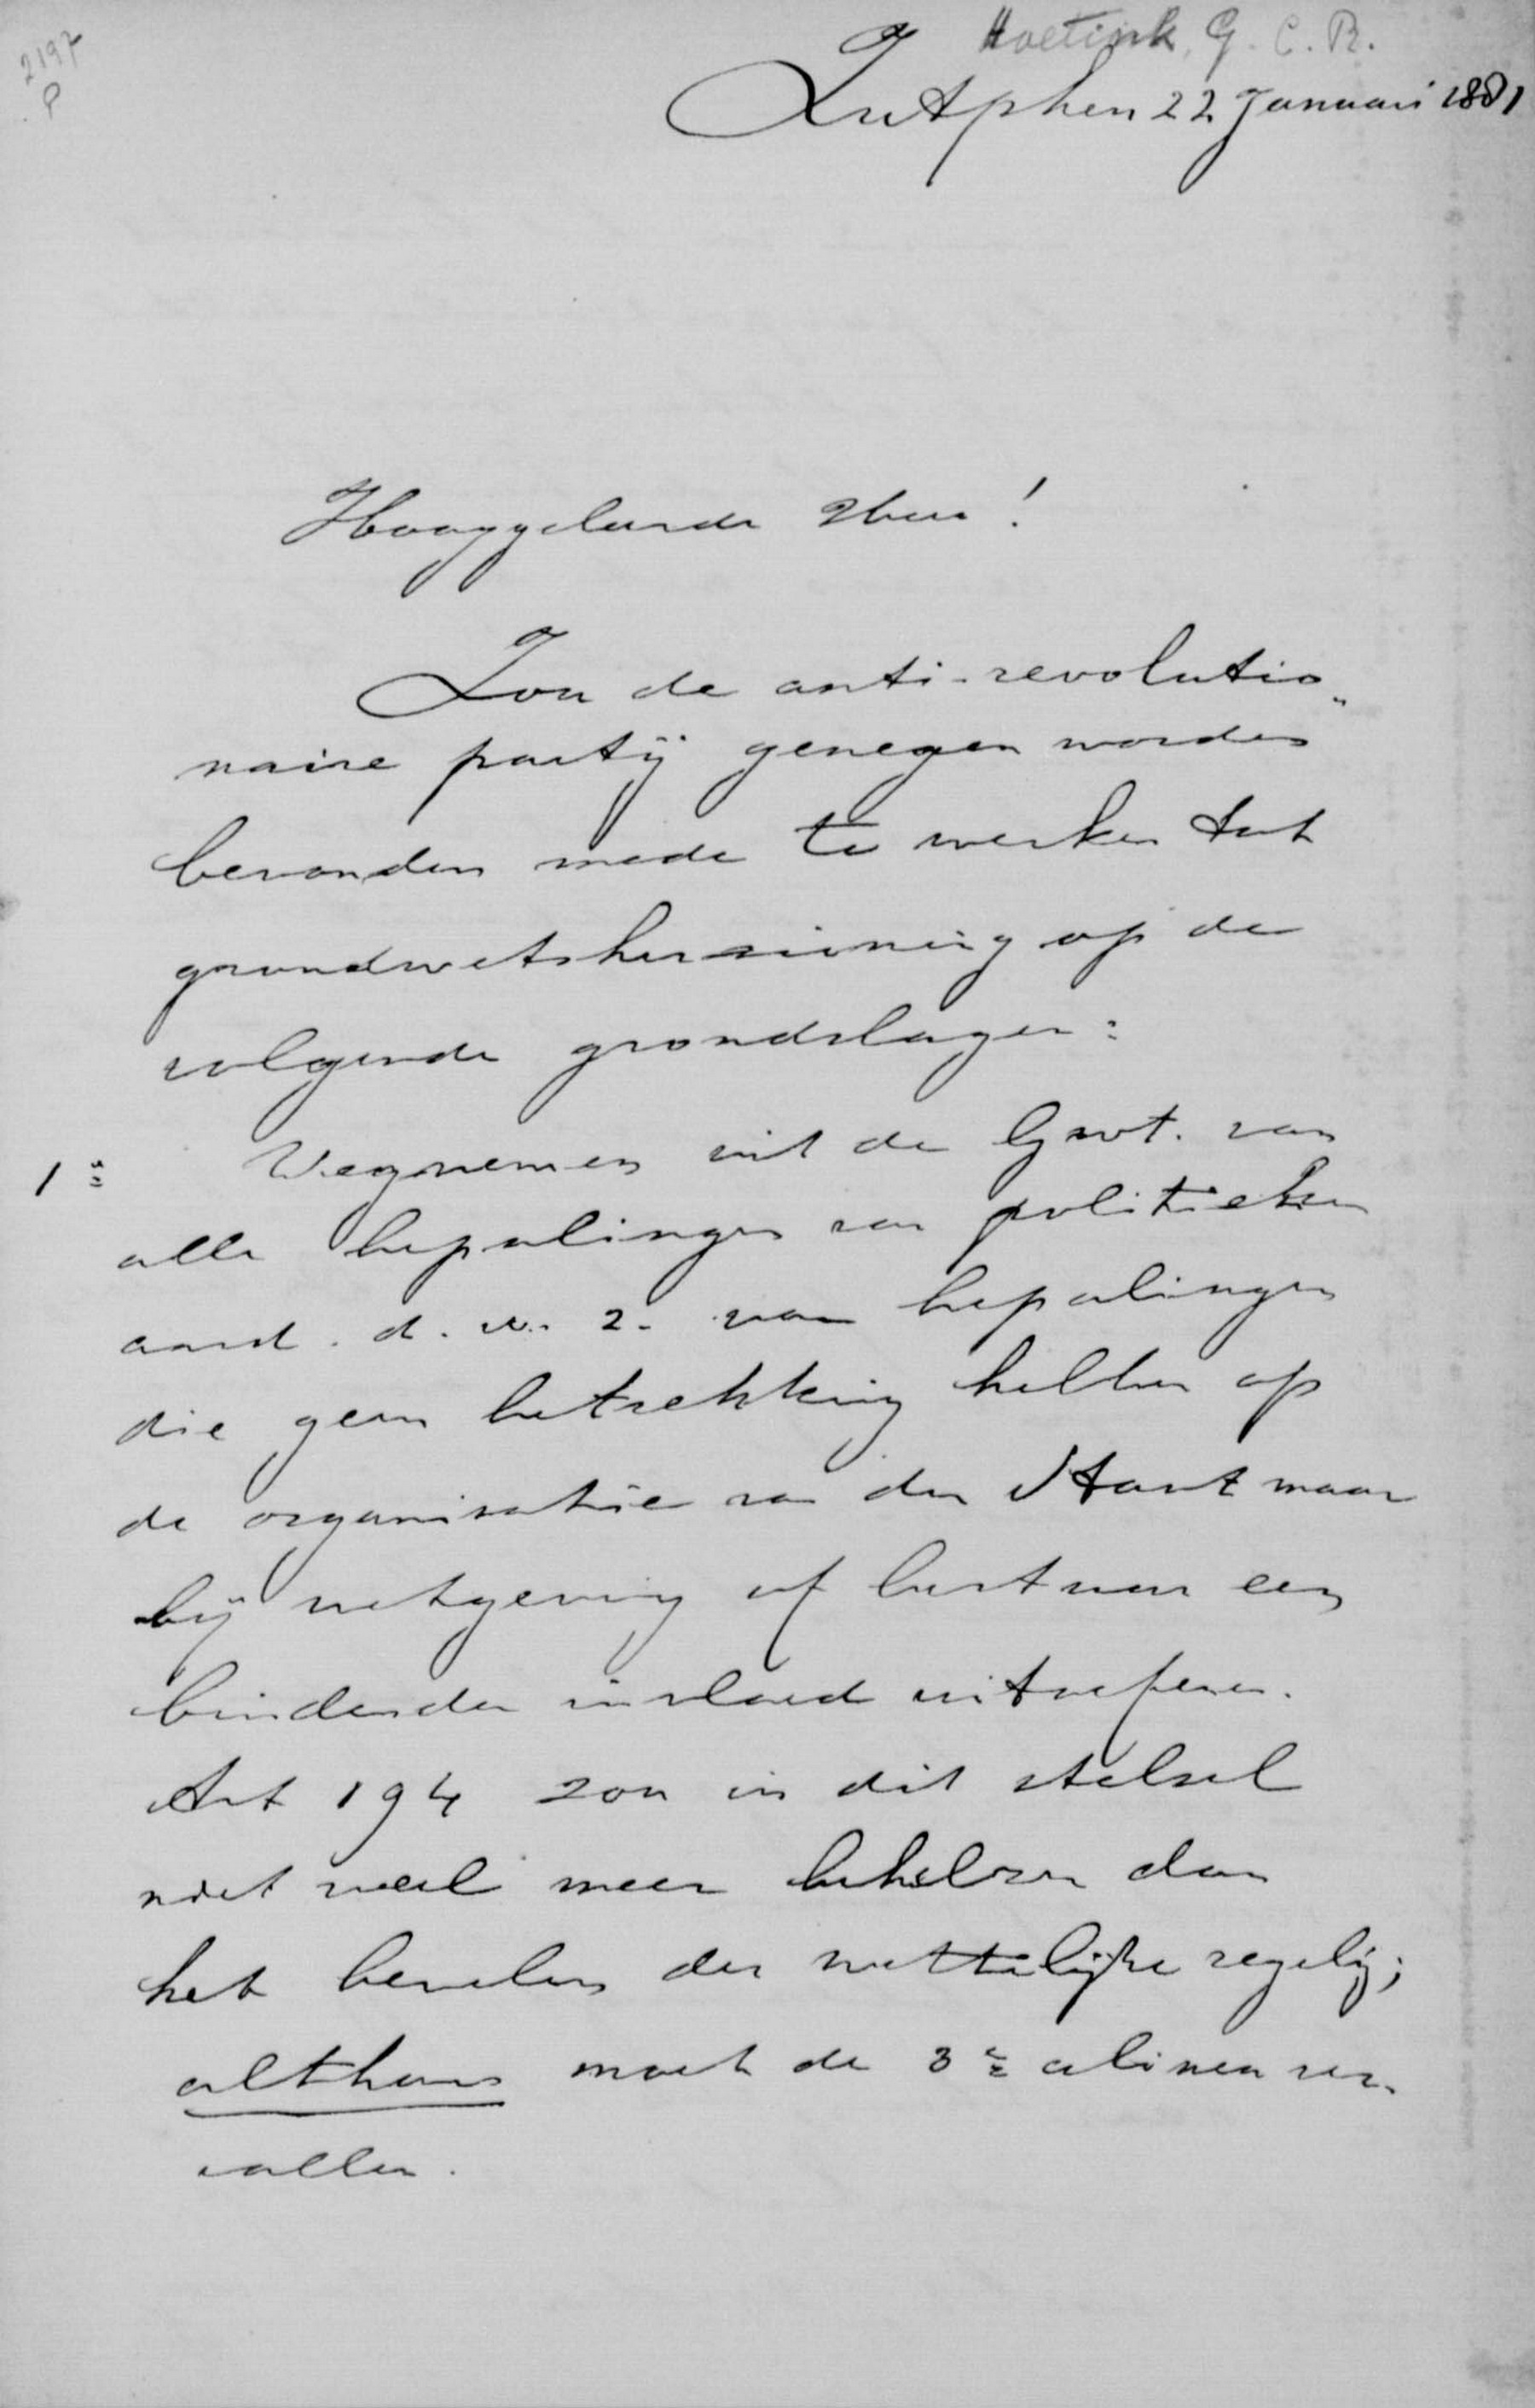 2197
P
Hoetink, G. C. B.
Zutphen 22 Januari 1881
Hooggeleerde Heer!
Zou de anti-revolutio„
naire partij genegen worden
bevonden mede te werken tot
grondwetsherziening op de
volgende grondslagen:
1º Wegnemen uit de Grwt. van
alle bepalingen van politieken
aard. d. w. z. van bepalingen
die geen betrekking hebben op
de organisatie van den Staat maar
bij wetgeving of bestuur een
bindenden invloed uitoefenen.
Art 194 zou in dit stelsel
niet veel meer behelzen dan
het bevelen der wettelijke regelg;
althans moet de 3e alinea ver-
vallen.